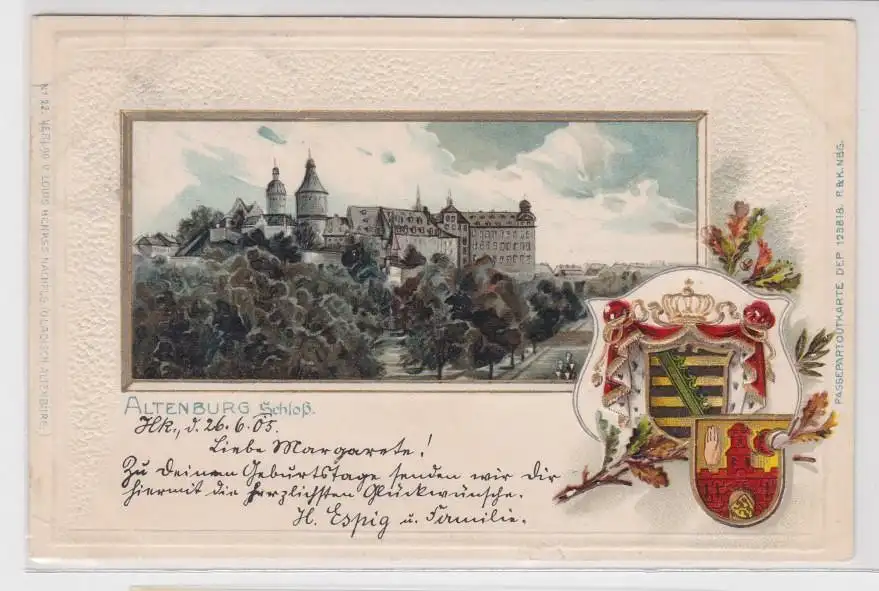 ALTENBURG Schloß.
Hk., d. 26.6.05.
Liebe Margarete!
Zu Deinem Geburtstage senden wir Dir
hiermit die herzlichsten Glückwünsche.
H. Espig u. Familie.
PASSEPARTOUTKARTE DEP 125818. P. & K. NBG.
VERLAG V. LOUIS
ALTENBURG.